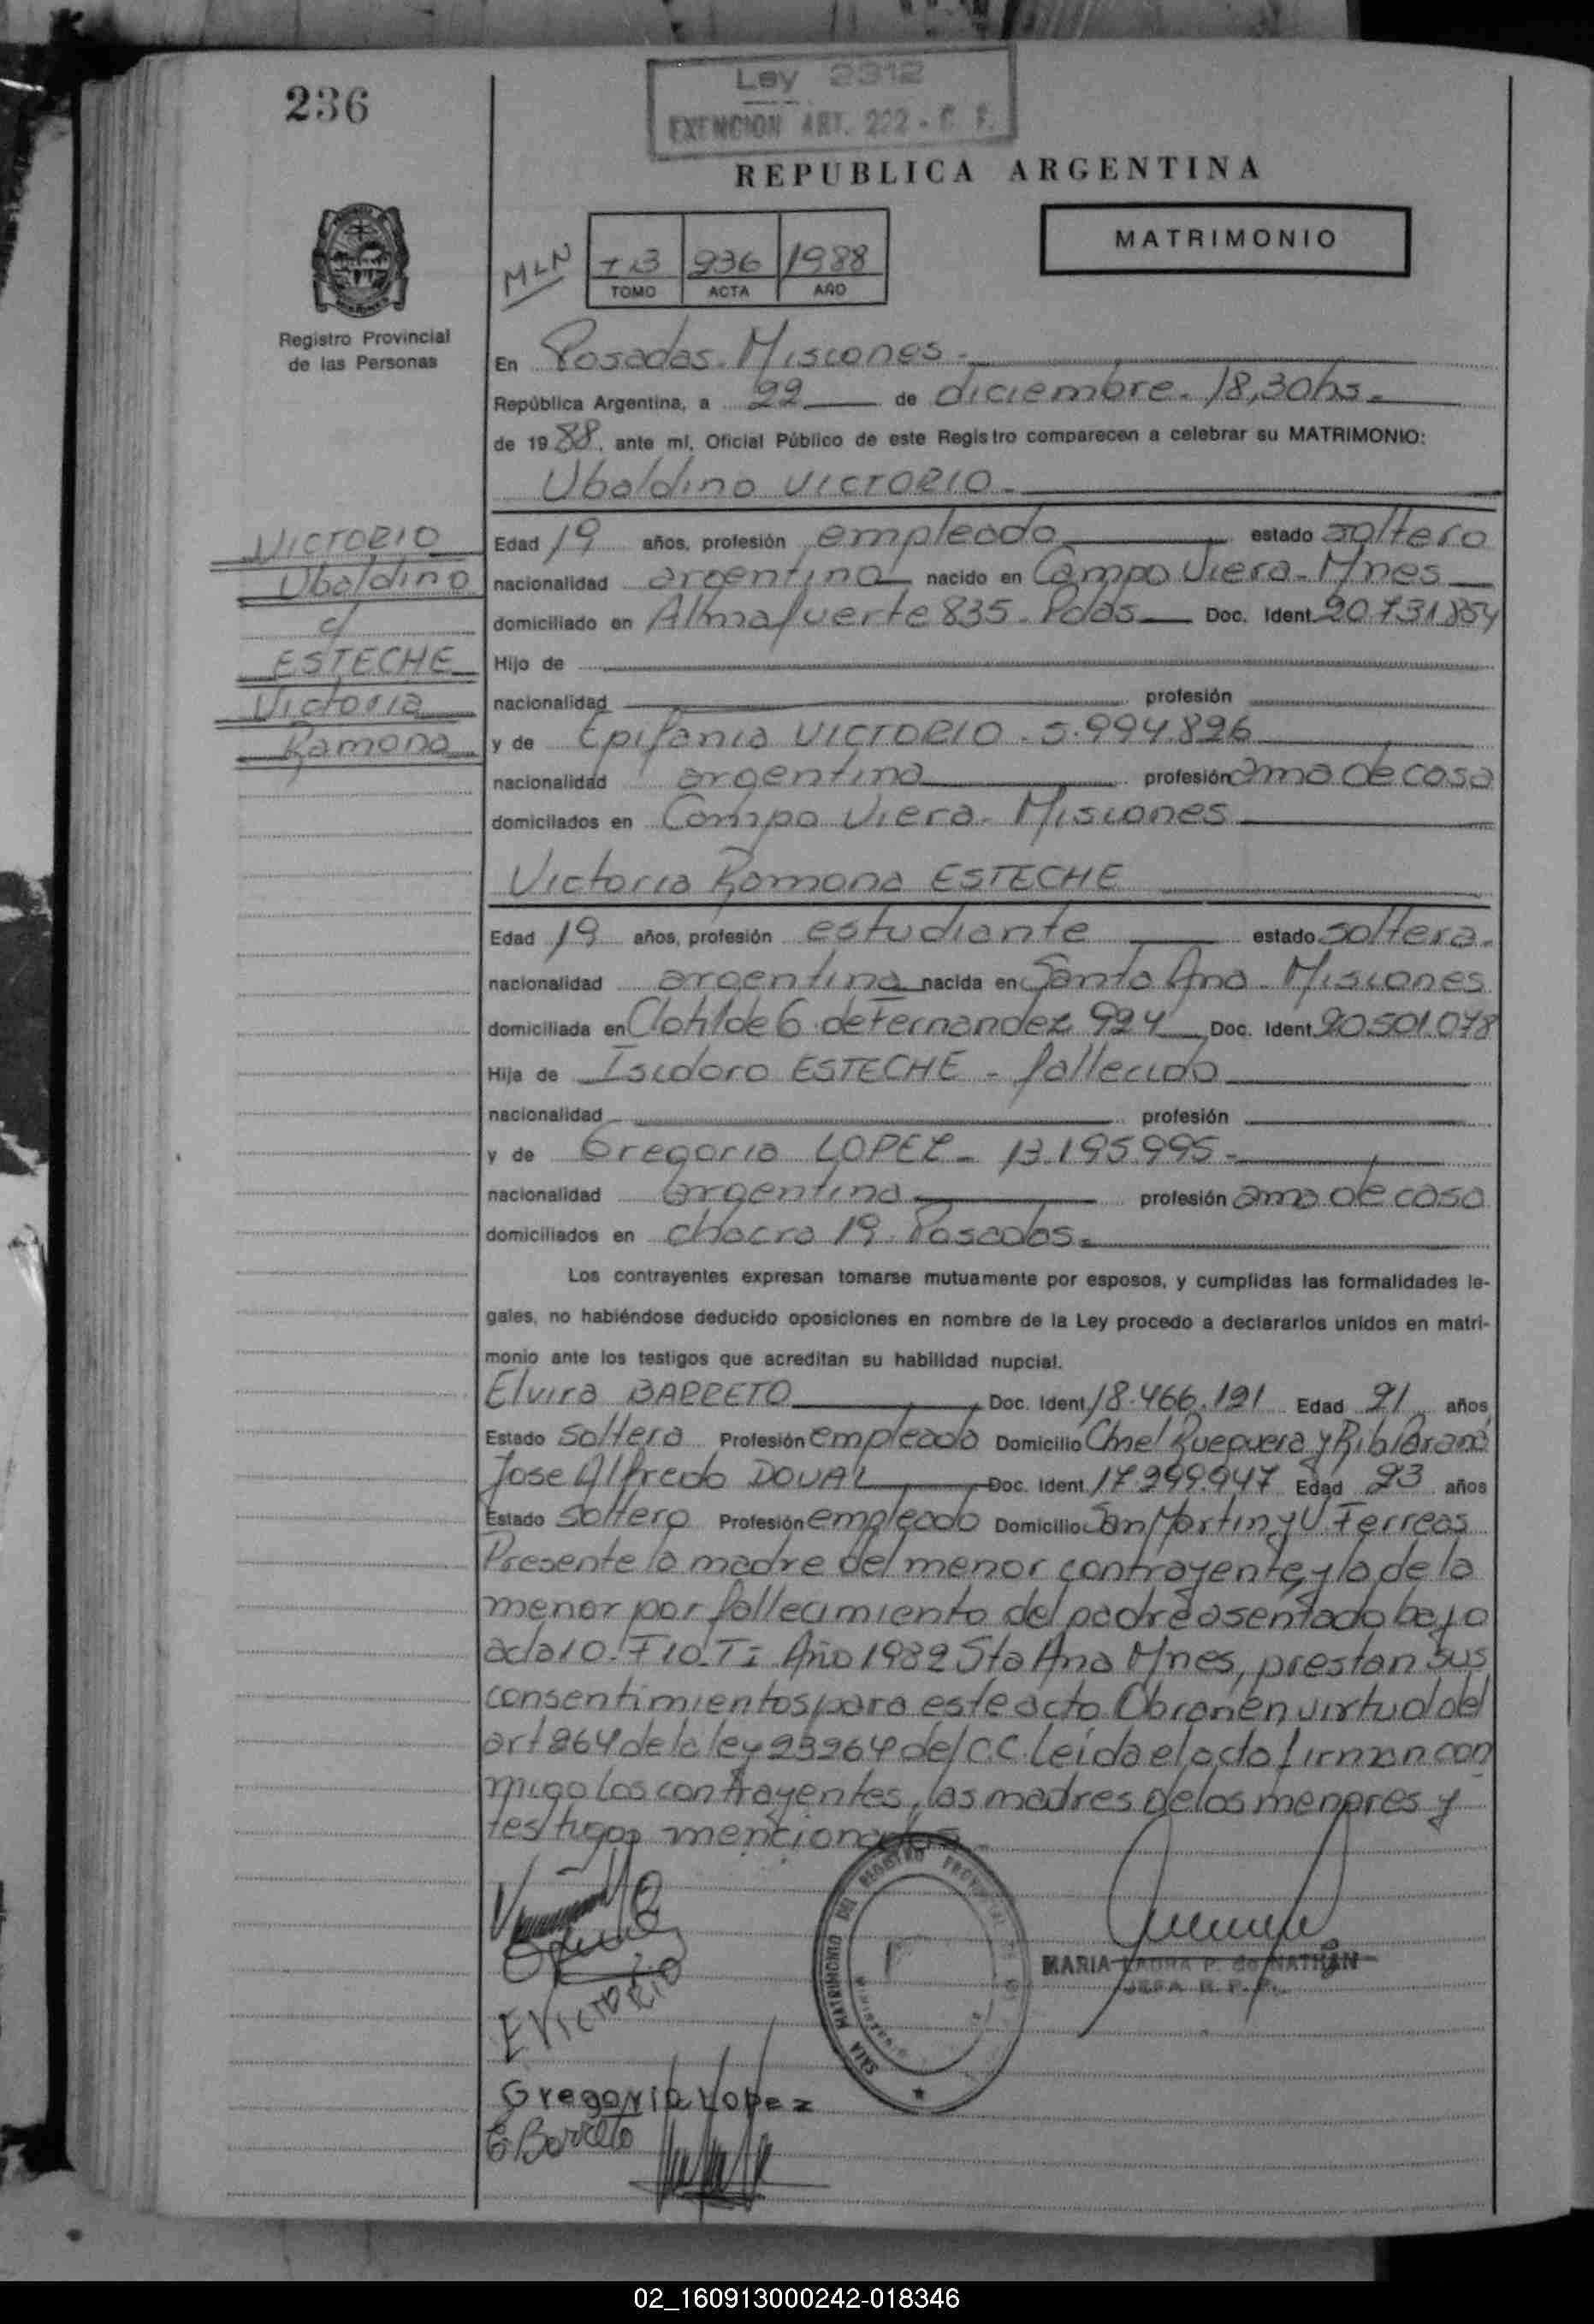 236
Ley 2312
EXENCION ART. 222 - C. F.
REPUBLICA ARGENTINA
MATRIMONIO
MLN
T.3 236 1988
TOMO ACTA AÑO
Registro Provincial
de las Personas
En Posadas. Misiones.
República Argentina, a 22 de diciembre. 18,30hs.
de 1988, ante mí, Oficial Público de este Registro comparecen a celebrar su MATRIMONIO:
Ubaldino VICTORIO.
VICTORIO
Ubaldino
c/
ESTECHE
Victoria
Ramona
Edad 19 años, profesión empleado estado soltero
nacionalidad argentina nacido en Campo Viera. Mnes
domiciliado en Almafuerte 835. Pdas Doc. Ident. 20.731.854
Hijo de
nacionalidad profesión
y de Epifania VICTORIO. 5.994.826
nacionalidad argentina profesión ama de casa
domiciliados en Campo Viera. Misiones
Victoria Ramona ESTECHE
Edad 19 años, profesión estudiante estado soltera.
nacionalidad argentina nacida en Santa Ana. Misiones
domiciliada en Clotilde G. de Fernandez 924 Doc. Ident. 20.501.078
Hija de Isidoro ESTECHE - fallecido
nacionalidad profesión
y de Gregoria LOPEZ - 13.195.995.
nacionalidad argentina profesión ama de casa
domiciliados en chacra 19. Posadas.
Los contrayentes expresan tomarse mutuamente por esposos, y cumplidas las formalidades le-
gales, no habiéndose deducido oposiciones en nombre de la Ley procedo a declararlos unidos en matri-
monio ante los testigos que acreditan su habilidad nupcial.
Elvira BARRETO Doc. Ident. 18.466.191 Edad 21 años
Estado soltera Profesión empleada Domicilio Cnel y
Jose Alfredo DOUAL Doc. Ident. 17.299.947 Edad 23 años
Estado soltero Profesión empleado Domicilio San Martin y V. Ferreas
Presente la madre del menor contrayente, y la de la
menor por fallecimiento del padre asentado bajo
acta 10. F 10. T: Año 1982 Sta Ana Mnes, prestan sus
consentimientos para este acto. Obran en virtud del
art 264 de la ley 23264 del C.C. Leida el acta firman con
migo los contrayentes, las madres de los menores y
testigos mencionados.
SALA MATRIMONIO DEL REGISTRO PROVINCIAL
MARIA LAURA P. de NATHAN
JEFA R. P. P.
E VICTORIO
Gregoria Lopez
E Barreto
02_160913000242-018346